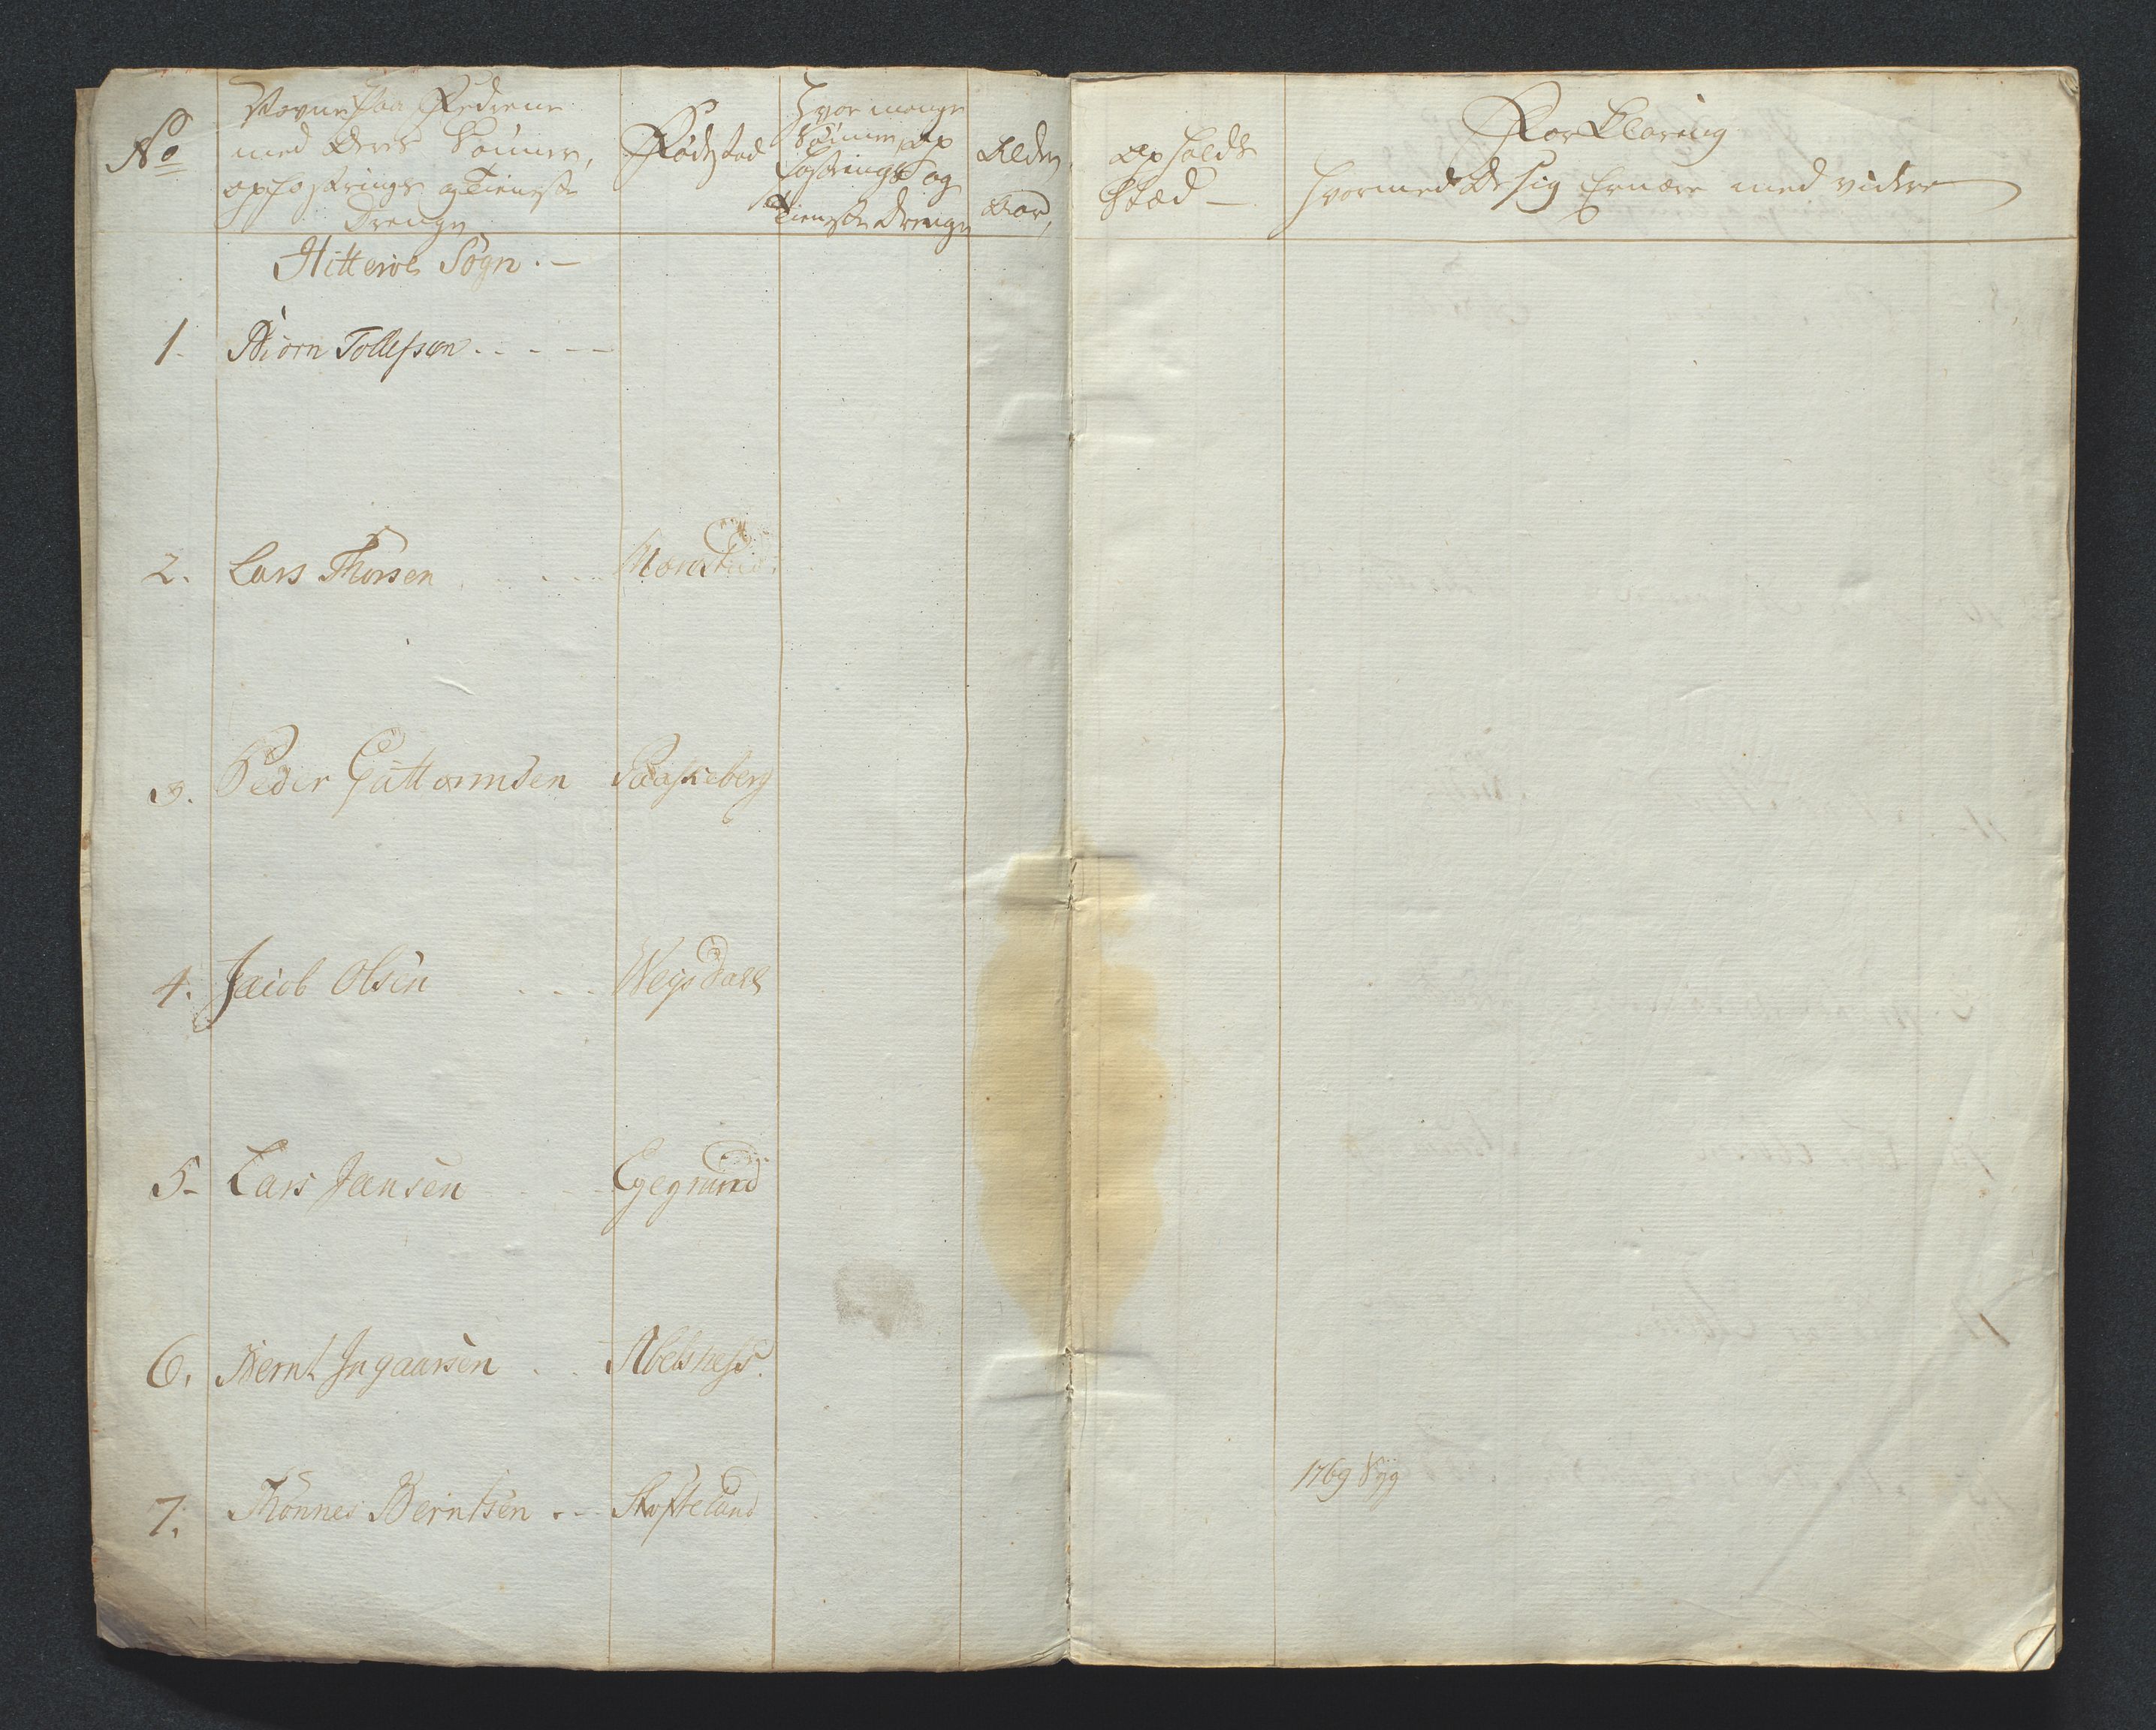 No
Navne paa Fædrene
med deres Sönner,
opfostrings og Tieneste
Drenge
Födested
Hvor mange
Sönner, op
fostrings og
Tieneste Drenge
Alder
Aar,
Opholds
Stæd -
Forklaring
hvormed De sig Ernære med videre
Hitteröe Sogn. -
1. Biörn Tollefsen
2. Lars Thorsen
3. Peder Guttormsen Paaskeberg
4. Jacob Olsen
5- Lars Jansen Egegrund
6. Bernt Ingaarsen Abelsness.
7. Thönnes Berntsen Skofteland
1769 Syg